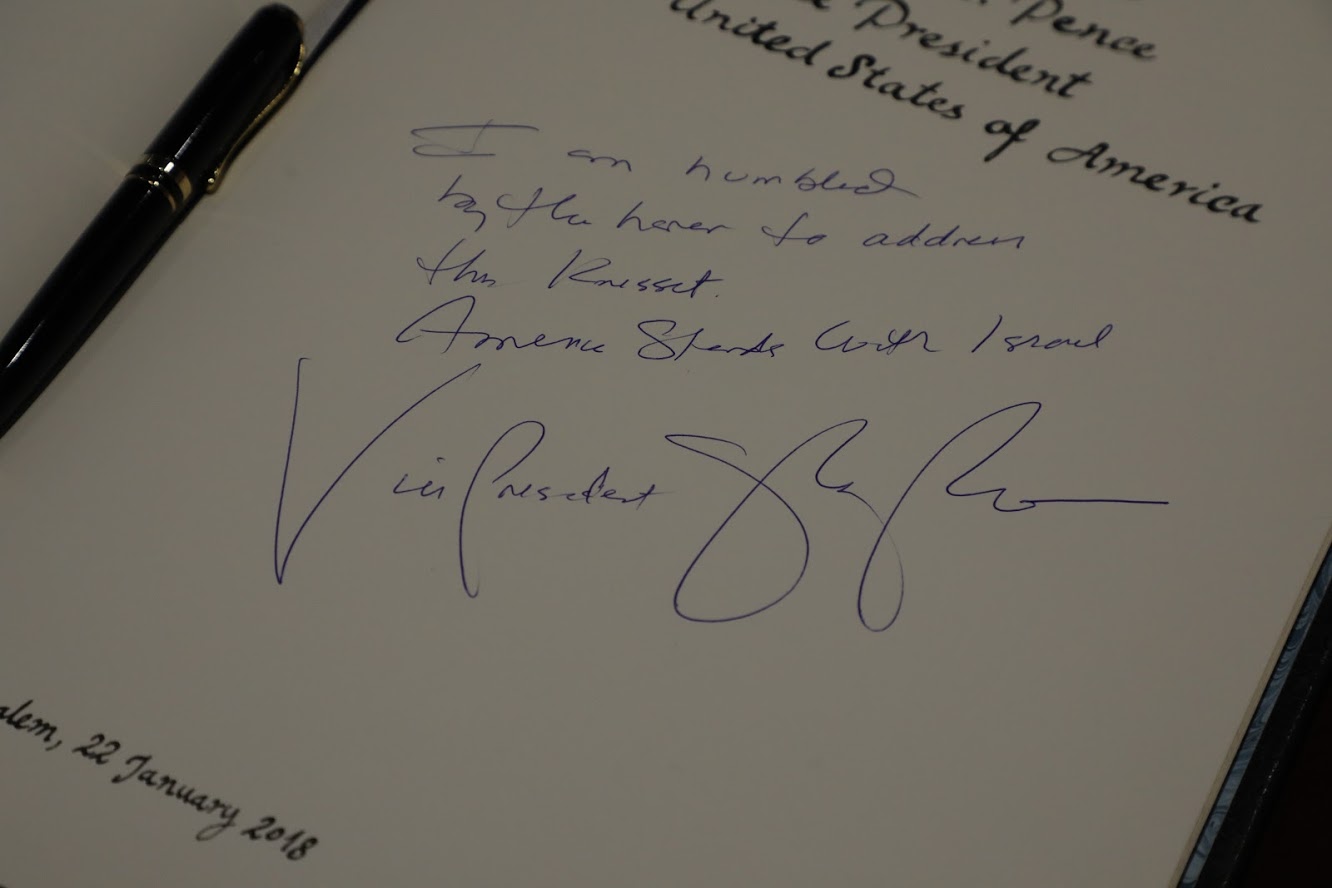 Pence
President
United States of America
I am humbled
by the honor to address
this Knesset.
America Stands with Israel
Vice President
alem, 22 January 2018